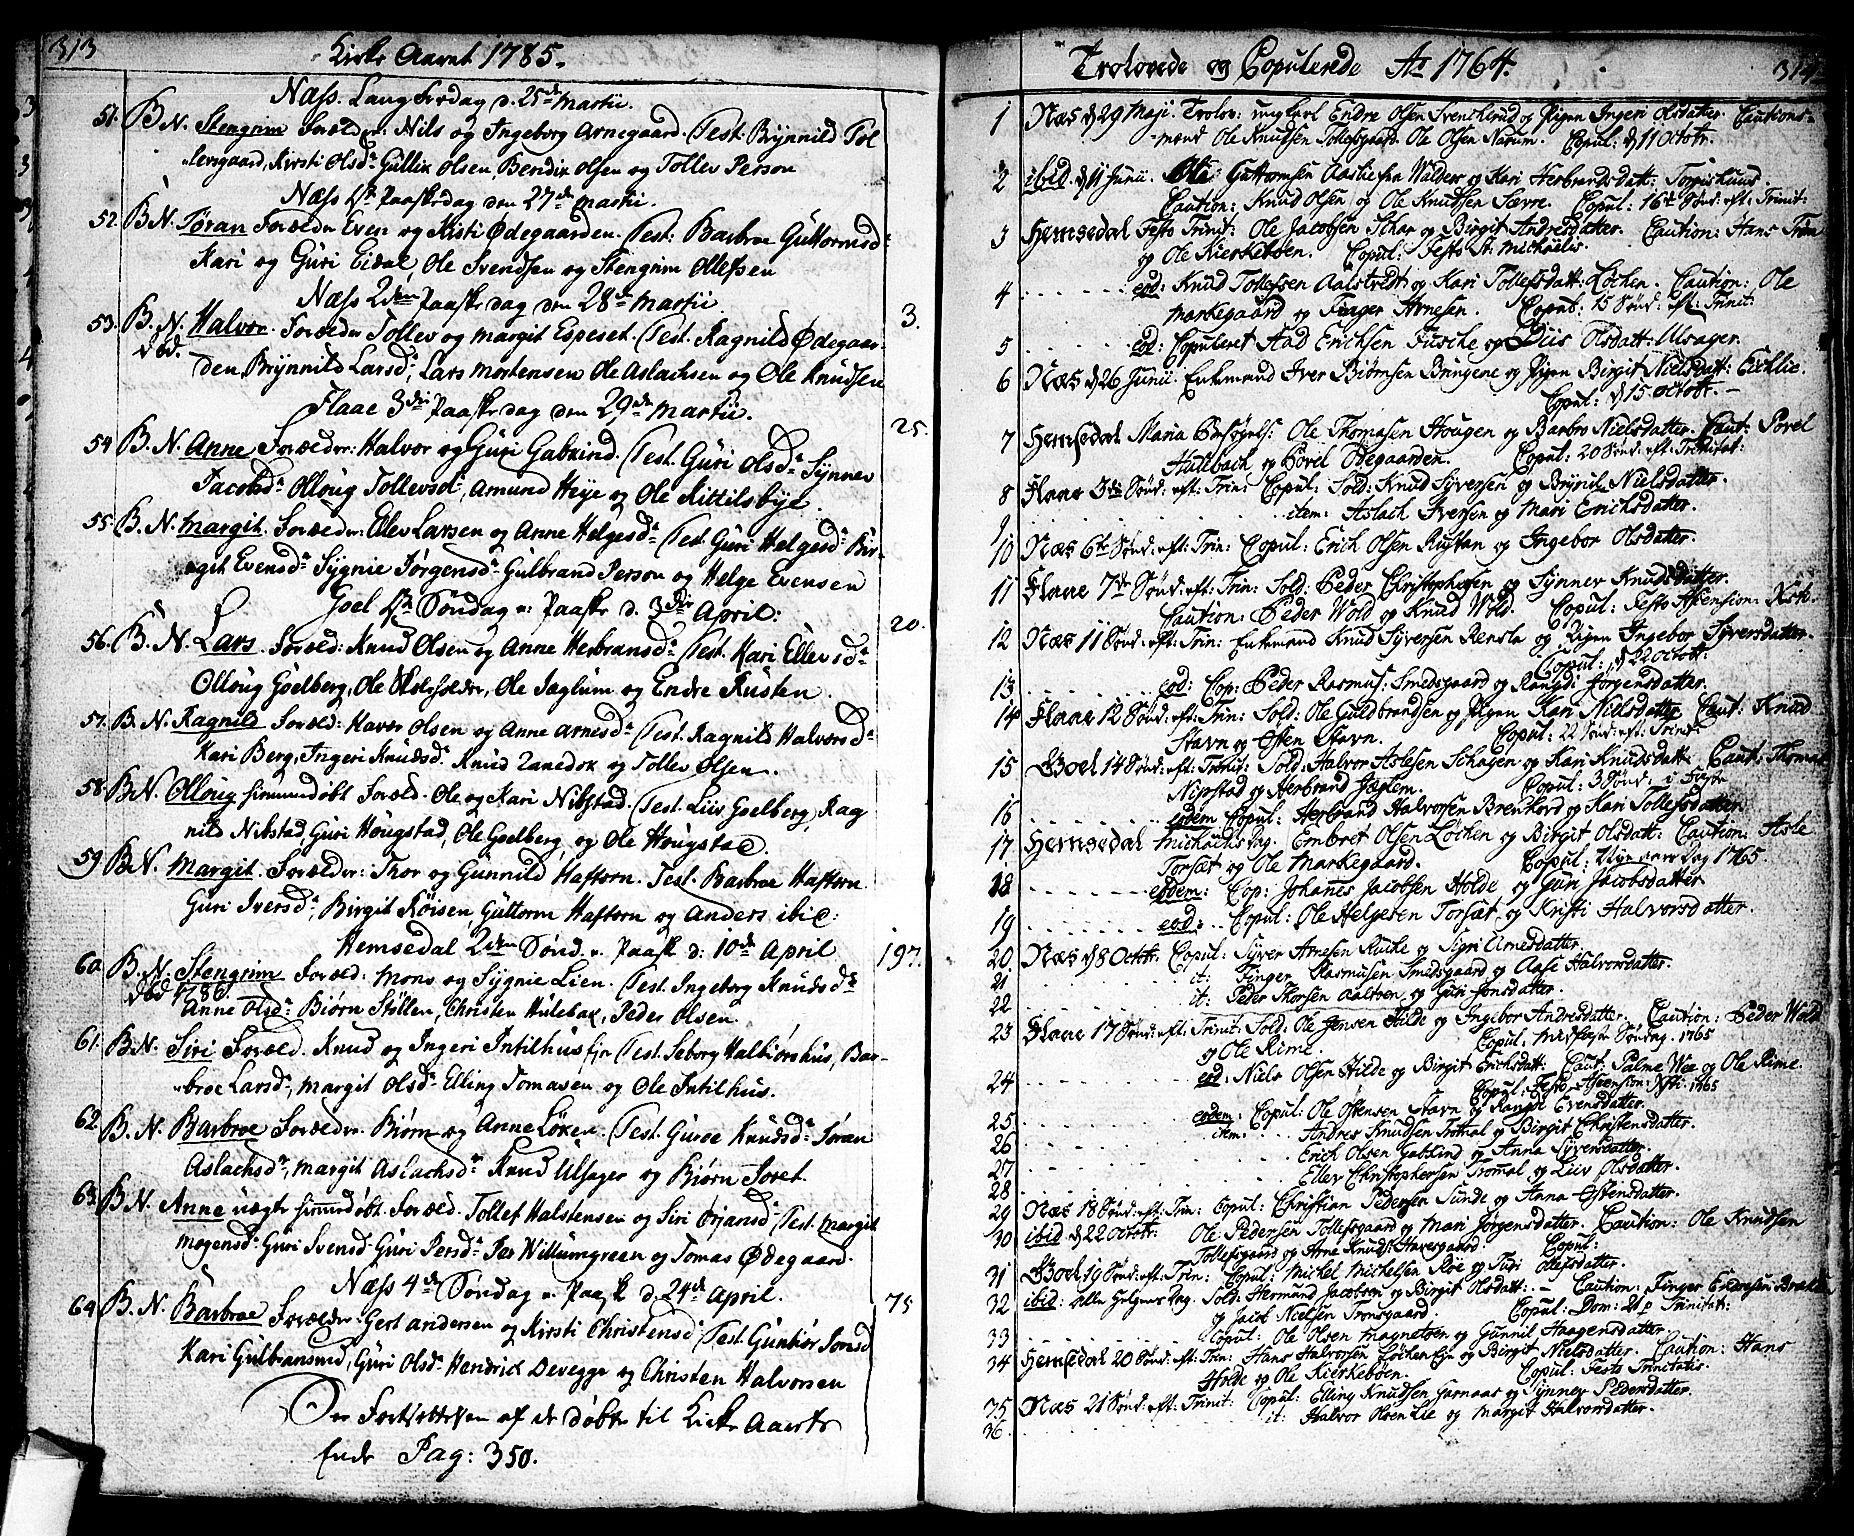 313
Kirke Aaret 1785.
Næss. Langfredag d. 25de Martii.
51. B.N. Stengrim Forældre: Nils og Ingeborg Arnegaard. Test: Brynnild Tol
levsgaard, Kirsti Olsd. Gullix Olsen, Bendix Olsen og Tollev Person
Næss 1ste Paaskedag den 27de Martii.
52. B.N. Tøran Forældre Even og Kisti Ødegaarden. Test: Barbroe Guttormsd
Kari og Guri Eidal, Ole Svendsen og Stengrim Ollefsen
Næss 2den Paaske dag den 28de Martii 3.
53. B.N. Halvor. Forældre Tollev og Margit Espeset. Test. Ragnild Ødegaar-
død. den, Brynnild Larsd, Lars Mortensen Ole Aslachsen og Ole Knudsen
Flaae 3die Paaske dag den 29de Martii. 25.
54 B.N. Anne Forældre: Halvor og Guri Gabkind. Test. Guri Olsd. Synnev
Jacobsd. Olloug Tollevsd, Amund Heye og Ole Kittilsbye.
55. B.N. Margit. Forældre: Ellev Larsen og Anne Helgesd. Test. Guri Helgesd. Bir-
git Evensd. Sygnie Jørgensd. Gulbrand Person og Helge Evensen
Goel 1ste Søndag e: Paaske d. 3die April: 20.
56. B.N. Lars. Foræld: Knud Olsen og Anne Herbransd. Test. Kari Ellevsd.
Olloug Goelberg, Ole Skoleholder, Ole Jæglum og Endre Rusten.
57. B.N. Ragnild Foræld: Haver Olsen og Anne Arnesd. Test. Ragnild Halvorsd.
Kari Berg, Ingeri Knudsd. Knud Zanedok og Tollev Olsen.
58. B.N. Olloug hiemmedøbt Foræld. Ole og Kari Nibstad. Test. Liiv Goelberg, Rag
nild Nibstad, Guri Hougstad, Ole Goelberg og Ole Hougstad.
59 B.N. Margit. Forældre: Thor og Gunnild Haftorn. Test. Barbroe Haftorn
Guri Iversd, Birgit Røisen, Guttorm Haftorn og Anders ibid:
Hemsedal 2den Sønd. e. Paaske d: 10de April 197.
60. B.N. Stengrim Foræld: Mons og Sygnie Lien. Test. Ingeborg Knudsd.
død 1786. Anne Olsd. Biørn Støllen, Christen Hulebak, Peder Olsen.
61. B.N. Siri Foræld. Knud og Ingeri Intilhus Test. Seborg Halbiørshus, Bar-
broe Larsd, Margit Olsd. Elling Tomasen og Ole Intilhus.
62 B.N. Barbroe Forældre. Biørn og Anne Løken. Test. Guroe Knudsd. Tøran
Aslachsd, Margit Aslachsd. Knud Ulsager og Biørn Toret.
63. B.N. Anne uægte hiemmedøbt. Foræld. Tollef Halstensen og Siri Ørjansd. Test. Margit
Mogensd. Guri Svensd. Guri Persd. Per Willumgreen og Tomas Ødegaard.
Næss 4de Søndag e. Paaske d. 24de April. 75
64. B.N. Barbroe Forældre: Gert Andersen og Kirsti Christensd. Test. Gunbiør Tomsd
Kari Gulbransmd, Guri Olsd. Hendrick Devegge og Christen Halvorsen
Den Fortsættelsen af de døbte til Kirke Aarets
Ende Pag: 350.
Trolovede og Copulerede Ao 1764. 314
1 Næs d 29 Maji. Trolov: ungkarl Endre Olsen Svenckerud og Pigen Ingeri Olsdatter. Cautions-
mænd Ole Knudsen Tollefsgaard. Ole Olsen Narum. Copul: d 11 Octobr.
2 ibid d 11 Junii. Ole Guttormsen Aasliesen Walders og Kari Herbrandsdatt:
Caution: Knud Olsen og Ole Knudsen Særre. Copul: 16de Sønd: eft: Trinit:
3 Hemsedal Festo Trinit: Ole Jacobsen Schar og Birgit Andresdatter. Caution: Hans Trøm
og Ole Kierkebøen. Copul: Festo St. Michaelis.
4 eod: Knud Tollefsen Aalstvedt og Kari Tollefsdatt: Løchen. Caution: Ole
Markegaard og Finger Arnesen. Copul: 15 Sønd: eft: Trinit:
5 eod: Copuleret Aad Erichsen Tuscke og Liis Olsdatt: Ulsager
6 Næs d 26 Junii. Enkemand Iver Biørnsen Bringene og Pigen Birgit Nielsdatt: Eichlie.
Copul: d 15 Octobr.
7 Hemsedal Maria Besøgels: Ole Thomasen Hougen og Barbro Nielsdatter. Caut: Povel
Hullbach og Povel Ødegaarden. Copul: 20 Sønd: eft: Trinitat:
8 Flaae 3die Sønd: eft: Trin: Copul: Sold: Knud Syversen og Brynil Nielsdatter.
9 item: Aslach Iversen og Mari Erichsdatter.
10 Næs 6te Sønd: eft: Trin: Copul: Erich Olsen Rustan og Ingebor Olsdatter.
11 Flaae 7de Sønd: eft: Trin: Sold: Peder Christophersen og Synnev Knudsdatter.
Caution: Peder Wold og Knud Wold. Copul: Festo Ascension: Xsti.
12 Næs 11 Sønd: eft: Trin: Enkemand Knud Syversen Rensla og Pigen Ingebor Syversdatter.
Copul: d 22 Octobr:
13 eod: Cop: Peder Rasmus: Smedsgaard og Rangdi Jørgensdatter.
14 Flaae 12 Sønd: eft: Trin: Sold: Ole Guldbrandsen og Pigen Kari Nielsdatter Caut: Knud
Stavn og Østen Stavn. Copul: 22 Sønd: eft: Trinit:
15 Goel 14 Sønd: eft: Trinit: Sold: Halvor Aslesen Schagen og Kari Knudsdatt: Caut: Thomas
Nipstad og Herbrand Jæglem. Copul: 3 Sønd: i
16 eodem Copul: Herbrand Halvorsen Brenhovd og Kari Tollefsdatter
17 Hemsedal Michaelis Dag. Embret Olsen Løchen og Birgit Olsdatt: Caution: Asle
Torset og Ole Markegaard. Copul: Nye aars Dag 1765.
18 eodem: Cop: Johanes Jacobsen Holde og Guri Jacobsdatter
19 eod: Copul: Ole Helgesen Torsæt og Kristi Halvorsdatter.
20 Næs d 8 Octobr. Copul: Syver Arnesen Rucke og Sigri Arnesdatter.
21 it: Finger Rasmusen Smedsgaard og Aase Halvorsdatter.
22 it: Peder Thorsen Aaltoen og Guri Jonsdatter.
23 Flaae 17 Sønd: eft: Trinit: Sold: Ole Jensen Hilde og Ingebor Andresdatter. Caution: Peder Wold
og Ole Rime. Copul: Midfaste Søndag. 1765
24 eod: Niels Olsen Hilde og Birgit Erichsdatt: Caut: Palme Wee og Ole Rime.
Copul: Festo Ascension: Xsti: 1765
25 eodem: Copul: Ole Østensen Stavn og Rangdi Evensdatter.
26 item: Andres Knudsen Tromal og Birgit Christensdatter.
27 Erich Olsen Gabkind og Anna Syversdatter.
28 Ellev Christophersen Tromal og Liiv Olsdatter.
29 Næs 18 Sønd: eft: Trin: Copul: Christian Pedersen Sunde og Anna Østensdatter.
30 ibid d 22 Octobr: Ole Pedersen Tollefsgaard og Mari Jørgensdatter. Caution: Ole Knudsen
Tollefsgaard og Arne Knuds: Haversgaard: Copul:
31 Goel 19 Sønd: eft: Trin: Copul: Michel Michelsen Roe og Turi Ollefsdatter.
32 ibid: alle Helgens Dag. Sold: Hermand Jacobsen og Birgit Olsdatt: Caution: Finger Endresen
og Jacob Nielsen Tronsgaard Copul: Dom: 21 p Trinitat:
33 Copul: Ole Olsen Magnetoen og Gunnil Haagensdatter.
34 Hemsedal 20 Sønd: eft: Trin: Hans Halvorsen Løchen og Birgit Nielsdatter. Caution: Hans
Holde og Ole Kierkebøen. Copul: Festo Trinitatis.
35 Næs 21 Sønd: eft: Trinit: Copul: Elling Knudsen Garnaas og Synnev Pedersdatter.
36. it: Halvor Olsen Lie og Margit Halvorsdatter.